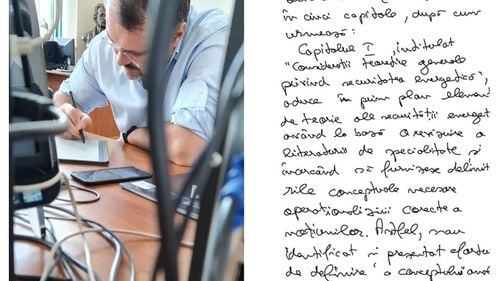 în cinci capitole, după cum
urmează:
Capitolul I, intitulat
"Considerații teoretice generale
privind securitatea energetică",
aduce în prim plan elemente
de teorie ale securității energet
având la bază o revizuire a
literaturii de specialitate și
încercând să furnizeze delimit
rile conceptuale necesare
operaționalizării corecte a
noțiunilor. Astfel, s-au
identificat și prezentat eforturi
de definire a conceptului